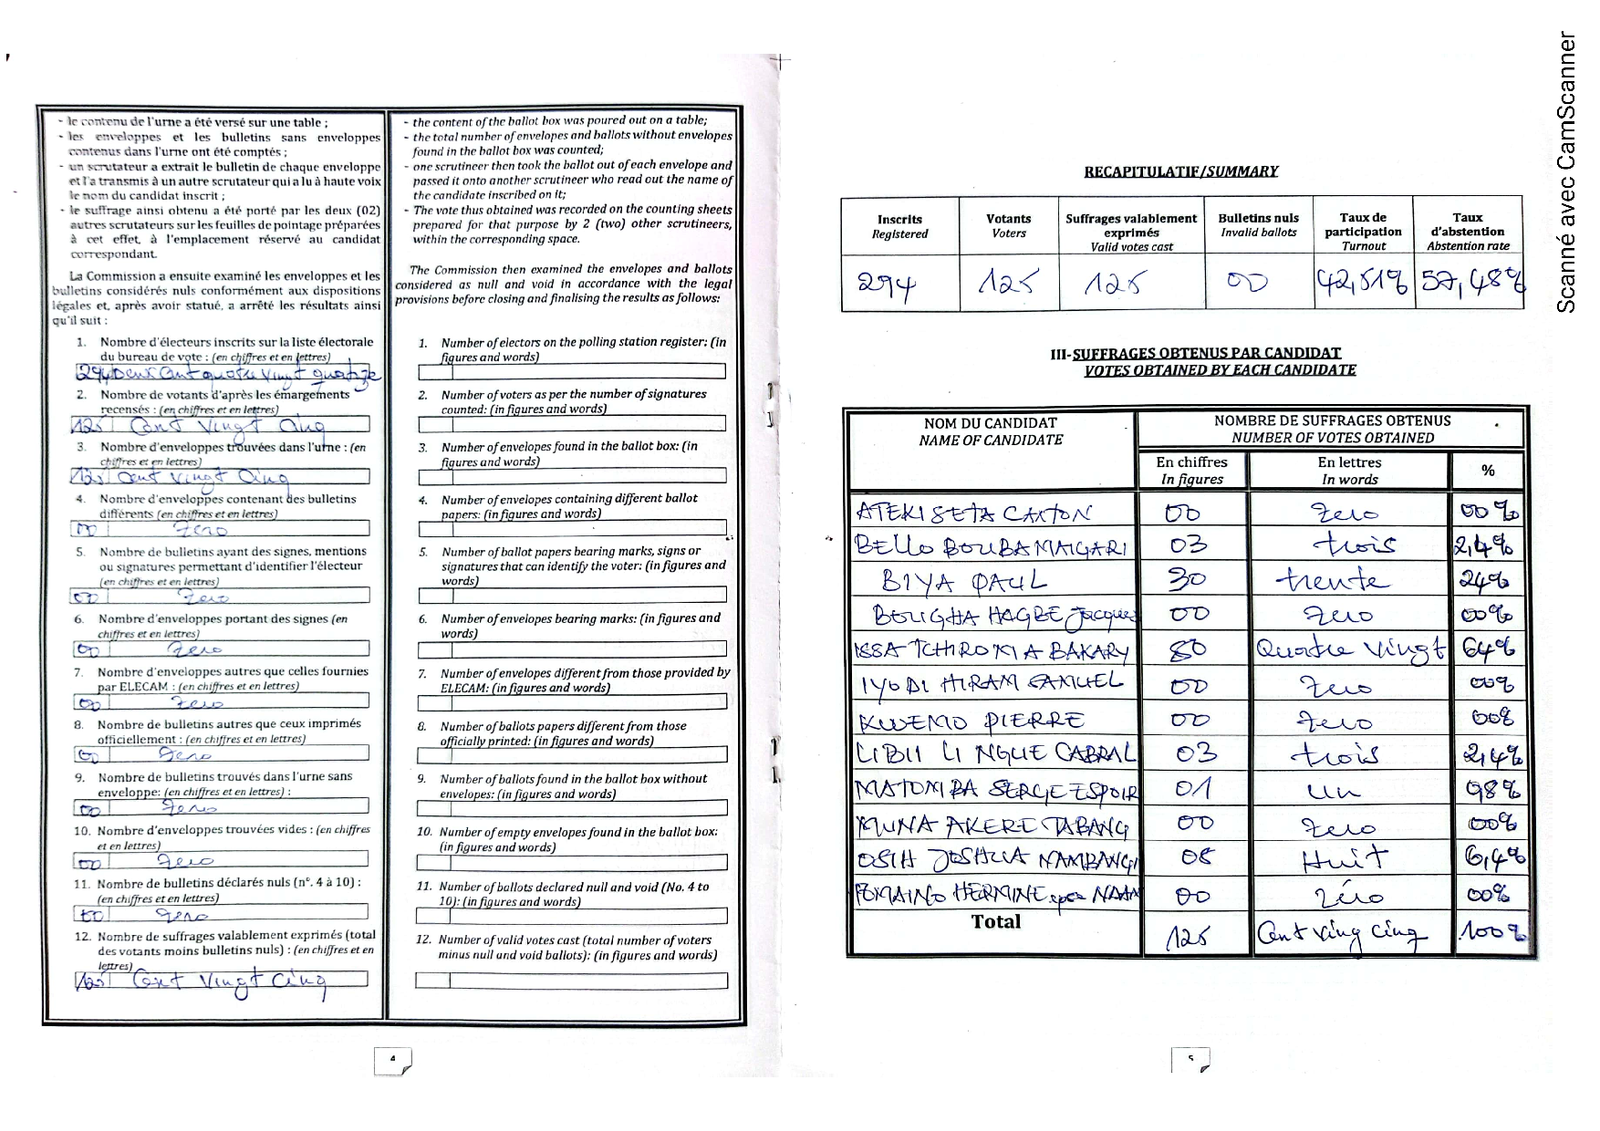 - le contenu de l'urne a été versé sur une table ;
- les enveloppes et les bulletins sans enveloppes
contenus dans l'urne ont été comptés ;
- un scrutateur a extrait le bulletin de chaque enveloppe
et l'a transmis à un autre scrutateur qui a lu à haute voix
le nom du candidat inscrit ;
- le suffrage ainsi obtenu a été porté par les deux (02)
autres scrutateurs sur les feuilles de pointage préparées
à cet effet, à l'emplacement réservé au candidat
correspondant.
La Commission a ensuite examiné les enveloppes et les
bulletins considérés nuls conformément aux dispositions
légales et, après avoir statué, a arrêté les résultats ainsi
qu'il suit :
1. Nombre d'électeurs inscrits sur la liste électorale
du bureau de vote : (en chiffres et en lettres)
294 Deux Cent quatre vingt quatorze
2. Nombre de votants d'après les émargements
recensés : (en chiffres et en lettres)
125 Cent Vingt Cinq
3. Nombre d'enveloppes trouvées dans l'urne : (en
chiffres et en lettres)
125 Cent Vingt Cinq
4. Nombre d'enveloppes contenant des bulletins
différents (en chiffres et en lettres)
00 Zero
5. Nombre de bulletins ayant des signes, mentions
ou signatures permettant d'identifier l'électeur
(en chiffres et en lettres)
00 Zero
6. Nombre d'enveloppes portant des signes (en
chiffres et en lettres)
00 Zero
7. Nombre d'enveloppes autres que celles fournies
par ELECAM : (en chiffres et en lettres)
00 Zero
8. Nombre de bulletins autres que ceux imprimés
officiellement : (en chiffres et en lettres)
00 Zero
9. Nombre de bulletins trouvés dans l'urne sans
enveloppe: (en chiffres et en lettres) :
00 Zero
10. Nombre d'enveloppes trouvées vides : (en chiffres
et en lettres)
00 Zero
11. Nombre de bulletins déclarés nuls (n°. 4 à 10) :
(en chiffres et en lettres)
00 Zero
12. Nombre de suffrages valablement exprimés (total
des votants moins bulletins nuls) : (en chiffres et en
lettres)
125 Cent Vingt Cinq
- the content of the ballot box was poured out on a table;
- the total number of envelopes and ballots without envelopes
found in the ballot box was counted;
- one scrutineer then took the ballot out of each envelope and
passed it onto another scrutineer who read out the name of
the candidate inscribed on it;
- The vote thus obtained was recorded on the counting sheets
prepared for that purpose by 2 (two) other scrutineers,
within the corresponding space.
The Commission then examined the envelopes and ballots
considered as null and void in accordance with the legal
provisions before closing and finalising the results as follows:
1. Number of electors on the polling station register: (in
figures and words)
2. Number of voters as per the number of signatures
counted: (in figures and words)
3. Number of envelopes found in the ballot box: (in
figures and words)
4. Number of envelopes containing different ballot
papers: (in figures and words)
5. Number of ballot papers bearing marks, signs or
signatures that can identify the voter: (in figures and
words)
6. Number of envelopes bearing marks: (in figures and
words)
7. Number of envelopes different from those provided by
ELECAM: (in figures and words)
8. Number of ballots papers different from those
officially printed: (in figures and words)
9. Number of ballots found in the ballot box without
envelopes: (in figures and words)
10. Number of empty envelopes found in the ballot box:
(in figures and words)
11. Number of ballots declared null and void (No. 4 to
10): (in figures and words)
12. Number of valid votes cast (total number of voters
minus null and void ballots): (in figures and words)
4
RECAPITULATIF/SUMMARY
Inscrits Registered Votants Voters Suffrages valablement exprimés Valid votes cast Bulletins nuls Invalid ballots Taux de participation Turnout Taux d'abstention Abstention rate
294 125 125 00 42,51% 57,48%
III-SUFFRAGES OBTENUS PAR CANDIDAT
VOTES OBTAINED BY EACH CANDIDATE
NOM DU CANDIDAT NOMBRE DE SUFFRAGES OBTENUS
NAME OF CANDIDATE NUMBER OF VOTES OBTAINED
En chiffres En lettres %
In figures In words
ATEKI SETA CAXTON 00 Zero 00%
BELLO BOUBA MAIGARI 03 trois 2,4%
BIYA PAUL 30 trente 24%
BOUGHA HAGBE Jacques 00 Zero 00%
ISSA TCHIROMA BAKARY 80 Quatre Vingt 64%
IYODI HIRAM SAMUEL 00 Zero 00%
KWEMO PIERRE 00 Zero 00%
LIBII LI NGUE CABRAL 03 trois 2,4%
MATOMBA SERGE ESPOIR 01 un 98%
MUNA AKERE TABANG 00 Zero 00%
OSIH JOSHUA NAMBANGI 08 Huit 6,4%
HERMINE 00 Zéro 00%
Total 125 Cent Ving Cinq 100%
5
Scanné avec CamScanner